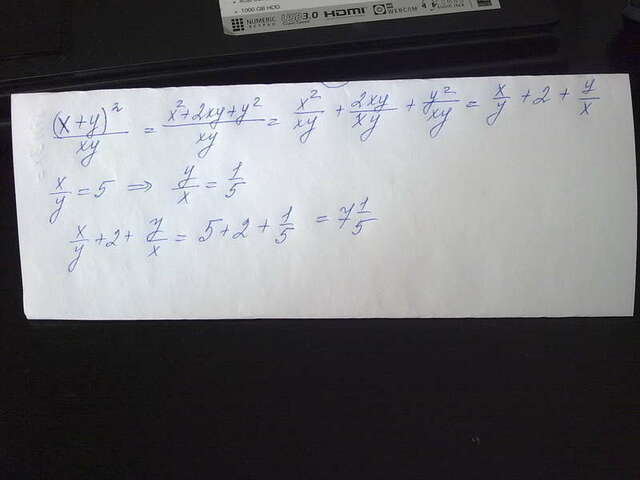 1000 GB HDD
NUMERIC
USB3.0 HDMI WEBCAM
(x+y)²/xy = x²+2xy+y²/xy = x²/xy + 2xy/xy + y²/xy = x/y + 2 + y/x
x/y = 5 ⇒ y/x = 1/5
x/y + 2 + y/x = 5 + 2 + 1/5 = 7 1/5